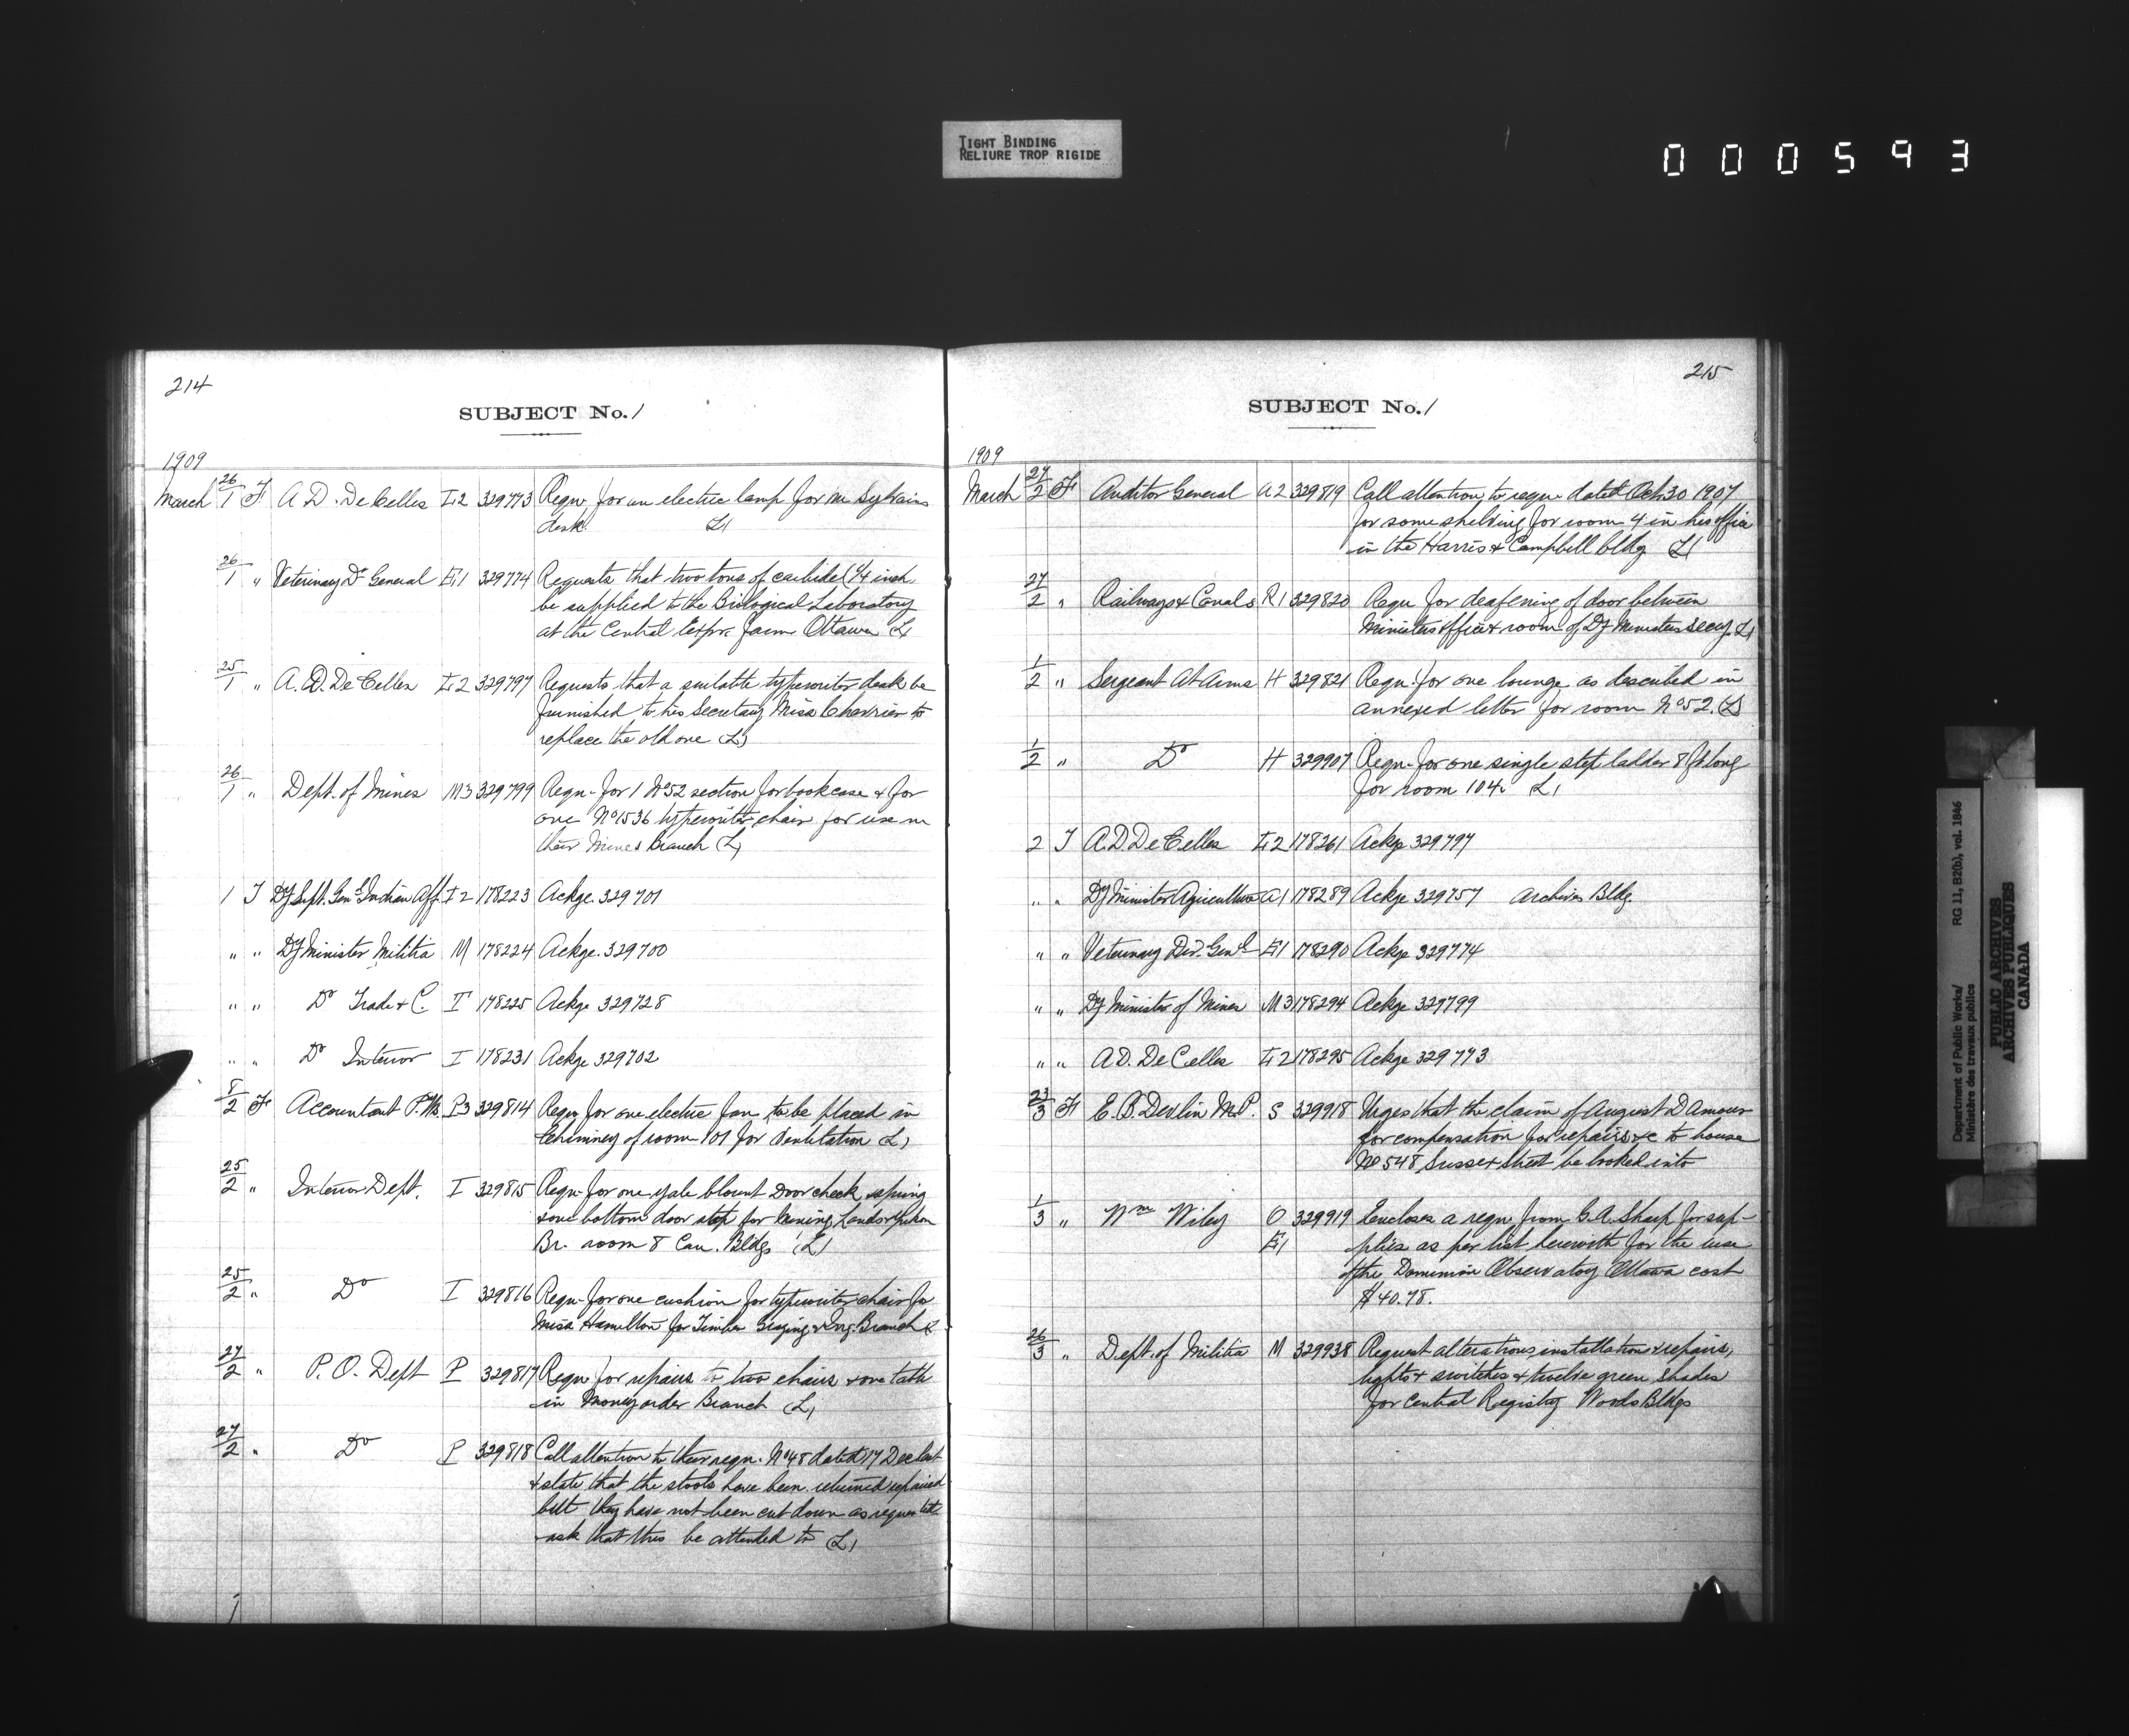 TIGHT BINDING
RELIURE TROP RIGIDE
000593
214
SUBJECT No. 1
1909
March 26/1 F A D. De Celles L2 329773 Requ. for an electric lamp for Mr Sylvains
desk. L1
26/1 " Veterinary Dr General E1 329774 Requests that two tons of carbide (1/4 inch
be supplied to the Biological Laboratory
at the Central Exptr. farm Ottawa L1
25/1 " A. D. De Celles L2 329797 Requests that a suitable typewriter desk be
furnished to his Secretary Miss Charrier to
replace the old one (L)
26/1 " Dept. of Mines M3 329799 Requ. for 1 No 52 section for bookcase & for
one No 1536 typewriter chair for use in
their Mines Branch (L)
1 T Dy Supt. Genl Indian Aff. I2 178223 Ackge. 329701
" " Dy Minister Militia M 178224 Ackge. 329700
" " Do Trade & C. T 178225 Ackge 329728
" " Do Interior I 178231 Ackge 329702
8/2 F Accountant P.Wks. P3 329814 Requ for one electric fan to be placed in
chimney of room 101 for ventilation L1
25/2 " Interior Dept. I 329815 Requ. for one yale blount Door check spring
& one bottom door stop for Mining Lands & Yukon
Br. room 8 Can. Bldgs (L)
25/2 " Do I 329816 Requ. for one cushion for typewriter chair for
Miss Hamilton for Timber Grazing & Irrg. Branch L
27/2 " P. O. Dept P 329817 Requ for repairs to two chairs & one table
in Money order Branch L1
27/2 " Do P 329818 Call attention to their requ. No 48 dated 17 Dec last
& state that the stools have been returned repaired
but they have not been cut down as requested
ask that this be attended to L1
215
SUBJECT No. 1
1909
March 27/2 F Auditor General A2 329819 Call attention to requ dated Oct 30 1907
for some shelving for room 4 in his office
in the Harris & Campbell bldg L1
27/2 " Railways & Canals R1 329820 Requ for deafening of door between
Ministers office & room of Dy Ministers Secy. L1
1/2 " Sergeant At Arms H 329821 Requ. for one lounge as described in
annexed letter for room No 52. (L)
1/2 " Do H 329907 Requ. for one single step ladder 8 ft long
for room 104. L1
2 T A.D De Celles L2 178261 Ackge 329797
" " Dy Minister Agriculture A1 178289 Ackge 329757 Archives Bldg.
" " Veterinary Dir. Genl E1 178290 Ackge 329774
" " Dy Minister of Mines M3 178294 Ackge 329799
" " A.D. De Celles L2 178295 Ackge 329773
23/3 F E. B. Devlin M.P. S 329918 Urges that the claim of August D'Amour
for compensation for repairs &c to house
No 548 Sussex Street be looked into
1/3 " Wm Wiley O 329919 Encloses a requ. from G. A. Sharp for sup-
E1 plies as per list herewith for the use
of the Dominion Observatory Ottawa cost
$40.78.
26/3 " Dept. of Militia M 329938 Request alterations, installation & repairs,
lights & switches & twelve green shades
for Central Registry Woods Bldgs
Department of Public Works/ RG 11, B2(b), vol. 1846
Ministère des travaux publics
PUBLIC ARCHIVES
ARCHIVES PUBLIQUES
CANADA